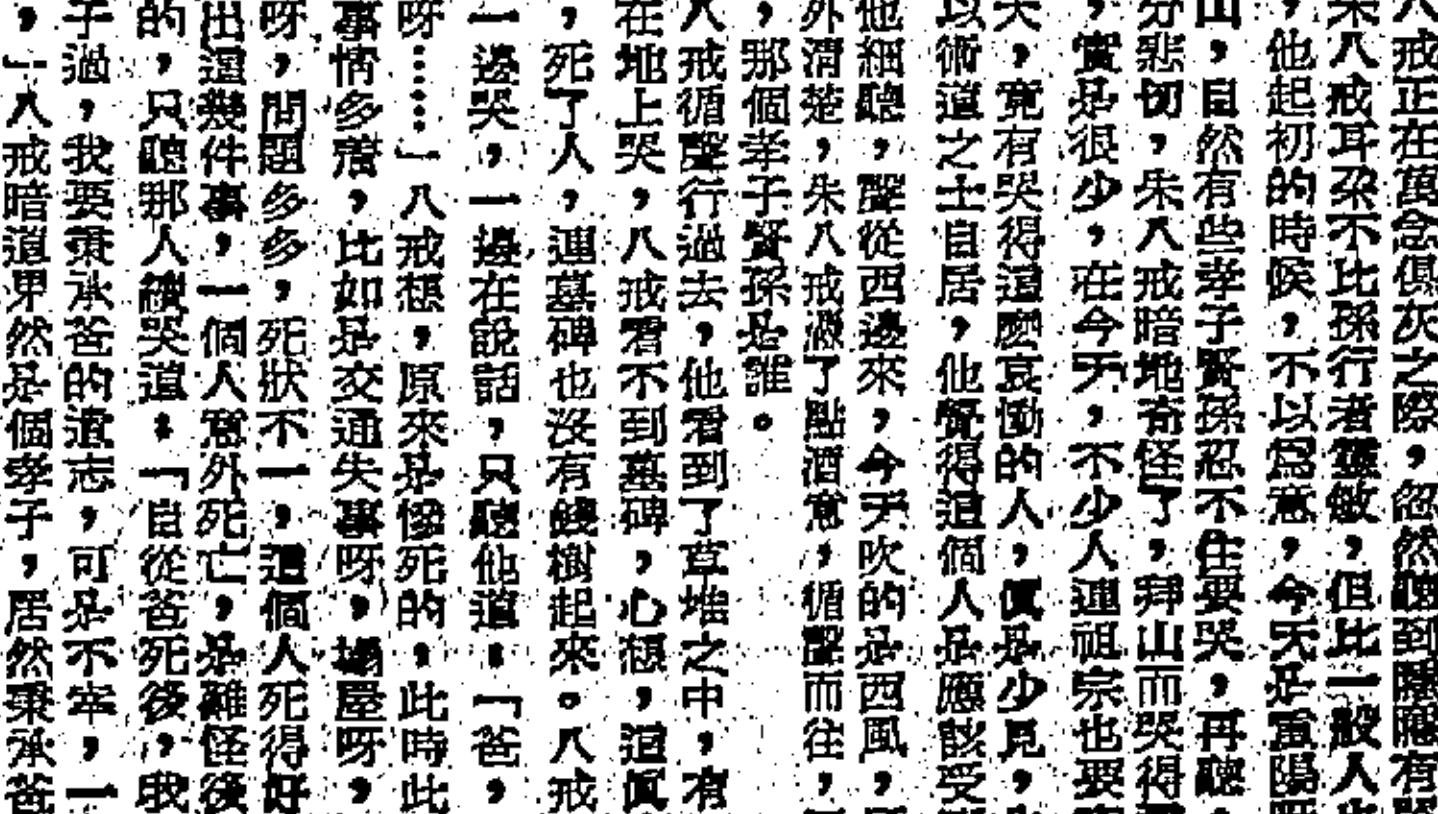 八戒正在萬念俱灰之際，忽然聽到隱隱有哭
朱八戒耳朶不比孫行者靈敏，但比一般人
，他起初的時候，不以爲意，今天是重陽
山，自然有些孝子賢孫忍不住要哭，再聽
分悲切，朱八戒暗地奇怪了，拜山而哭得
，實是很少，在今天，不少人連祖宗也要
天，竟有哭得這麽哀慟的人，眞是少見，
以術道之士自居，他覺得這個人是應該受
他細聽，聲從西邊來，今天吹的是西風，
外清楚，朱八戒憑了點酒意，循聲而往，
，那個孝子賢孫是誰。
八戒循聲行過去，他看到了草堆之中，有
在地上哭，八戒看不到墓碑，心想，這眞
，死了人，連墓碑也沒有錢樹起來。八戒
一邊哭，一邊在說話，只聽他道：「爸，
呀……」八戒想，原來是慘死的，此時此
事情多着，比如是交通失事呀，塲屋呀，
呀，問題多多，死狀不一，這個人死得好
出這幾件事，一個人意外死亡，是難怪後
的，只聽那人續哭道：「自從爸死後，我
子過，我要秉承爸的遺志，可是不幸，一
，」八戒暗道果然是個孝子，居然秉承爸